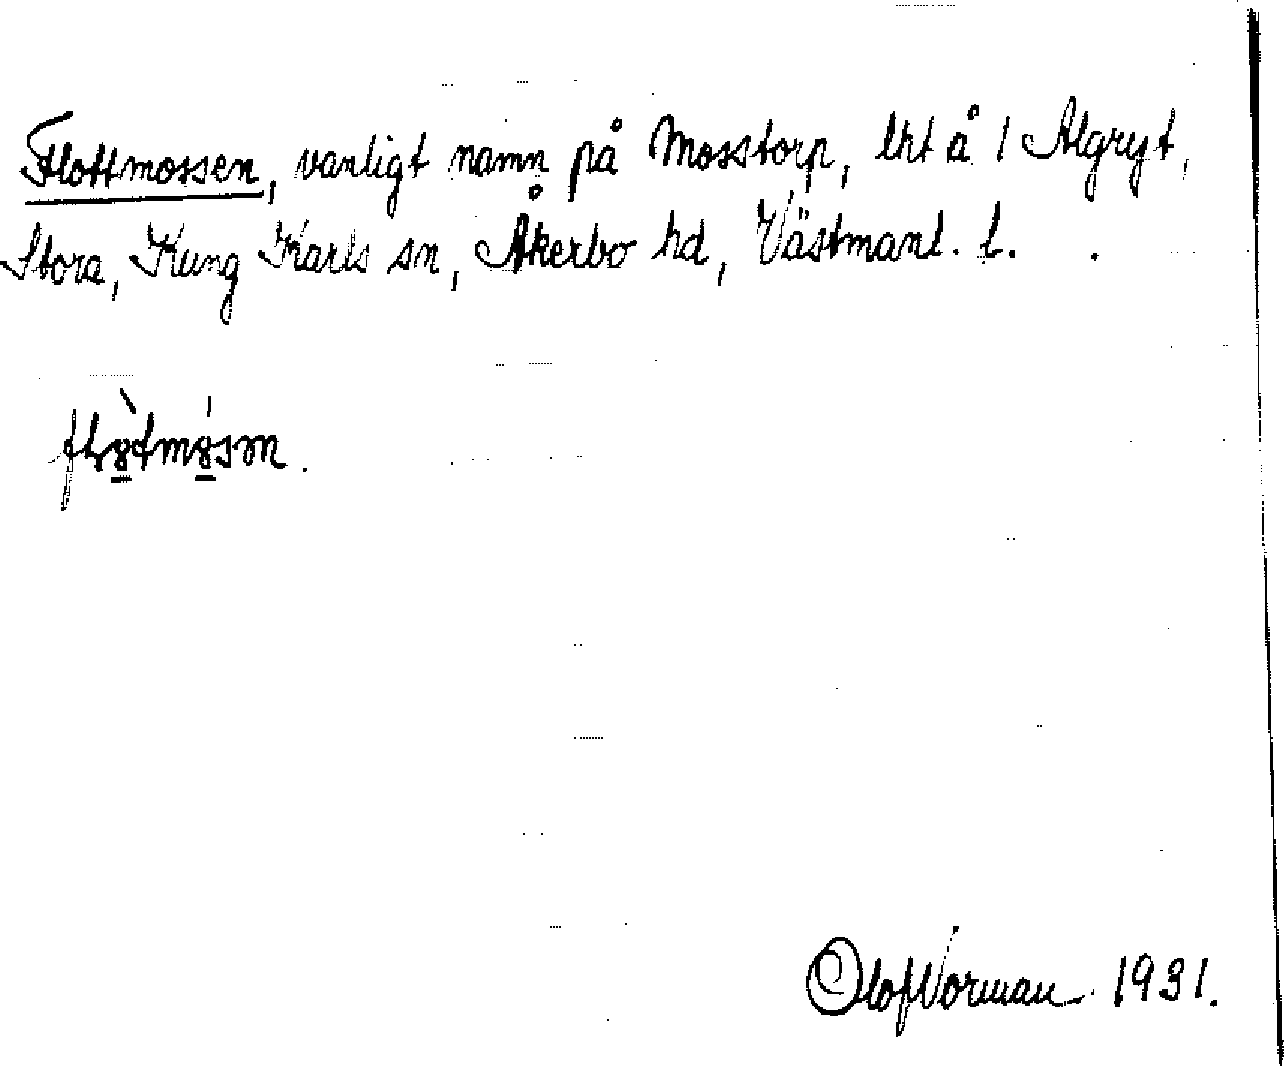 Flottmossen, vanligt namn på Mosstorp, lht å 1 Algryt,
Stora, Kung Karls sn, Åkerbo hd, Västmanl. l.
Olof Norman 1931.